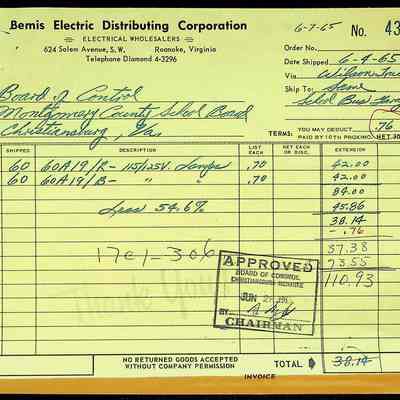 Bemis Electric Distributing Corporation
ELECTRICAL WHOLESALERS
624 Salem Avenue, S.W. Roanoke, Virginia
Telephone Diamond 4-3296
6-7-65 No. 43
Order No.
Date Shipped 6-4-65
Via Wilson
Ship To: Same
School Bus
Board of Control
Montgomery County School Board
Christiansburg, Va.
TERMS: YOU MAY DEDUCT .76
PAID BY 10TH PROXIMO. NET 30
SHIPPED LIST EACH NET EACH OR DISC. EXTENSION
60 60A19/R - 115/125V. Lamps .70 42.00
60 60A19/B - " " .70 42.00
84.00
Less 54.6% 45.86
38.14
- .76
37.38
1701-306 73.55
110.93
Thank You
APPROVED
BOARD OF CONTROL
CHRISTIANSBURG
JUN 196
BY
CHAIRMAN
NO RETURNED GOODS ACCEPTED
WITHOUT COMPANY PERMISSION
TOTAL 38.14
INVOICE